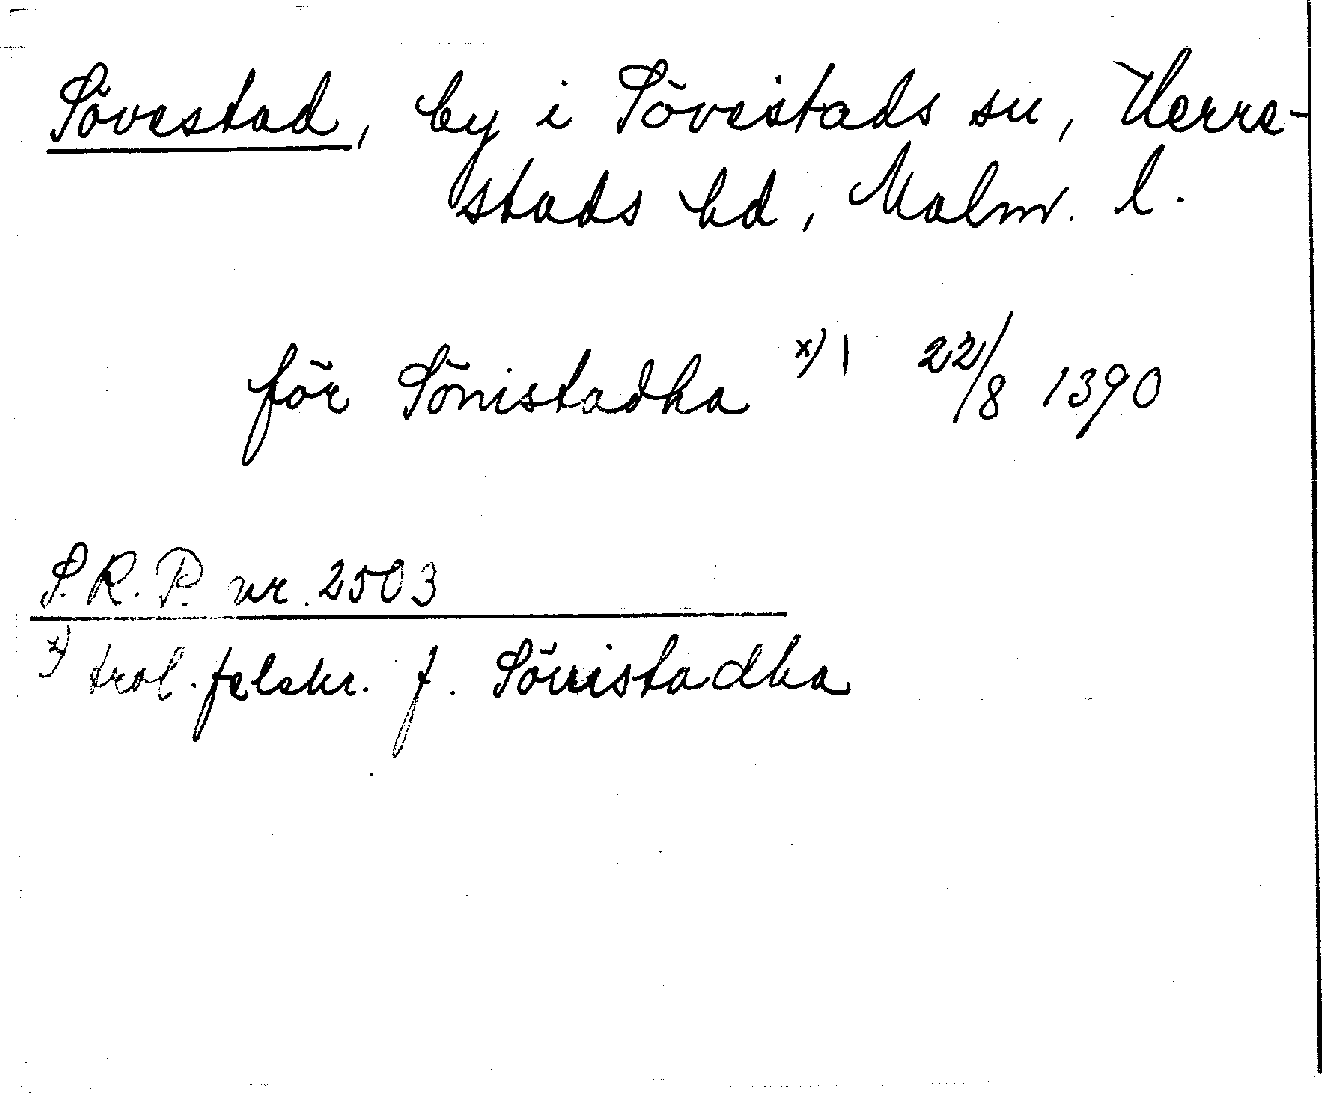 Sövestad, by i Sövestads sn, Herre-
stads hd, Malm. l.
för Sönistadha x) | 22/8 1390
S.R.P. nr. 2503
x) trol. felskr. f. Söuistadha